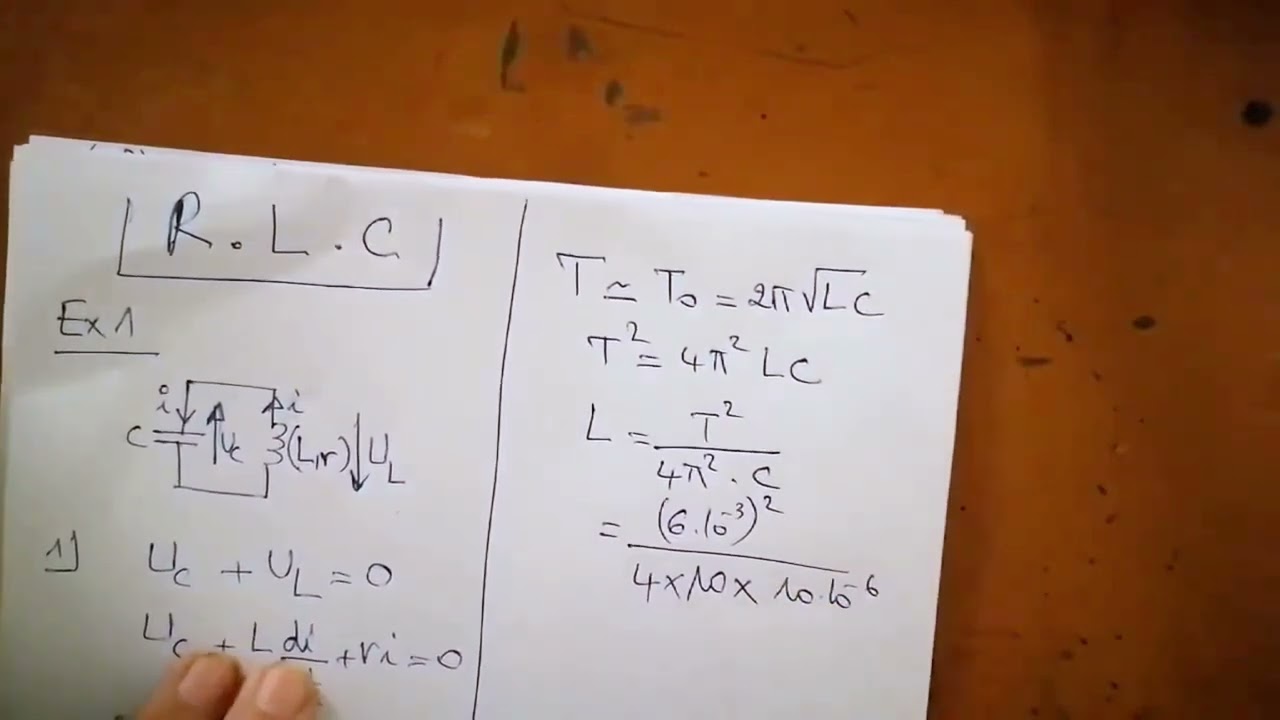 R.L.C
Ex1
i i
C Uc (L,r) UL
1) Uc + UL = 0
Uc + L di/dt + ri = 0
T ≃ T₀ = 2π√LC
T² = 4π² LC
L = T² / 4π² . C
= (6.10⁻³)² / 4×10×10.10⁻⁶